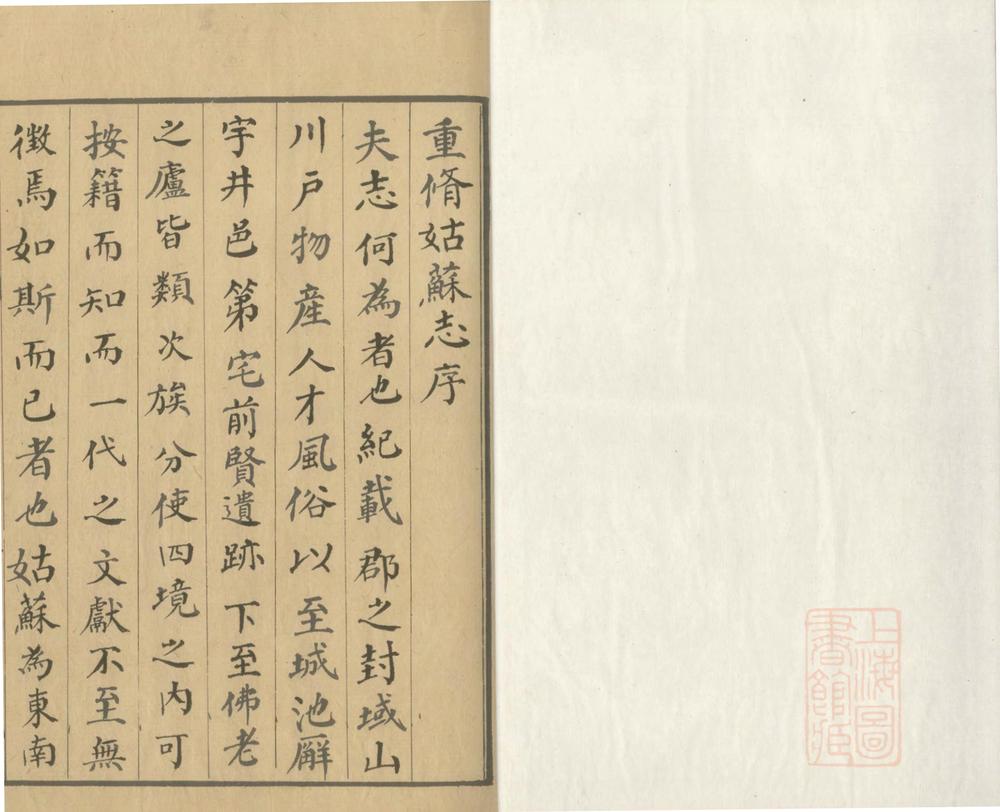 上海圖
書館藏
重脩姑蘇志序
夫志何為者也紀載郡之封域山
川戶物產人才風俗以至城池廨
宇井邑第宅前賢遺跡下至佛老
之廬皆類次族分使四境之內可
按籍而知而一代之文獻不至無
徵焉如斯而已者也姑蘇為東南